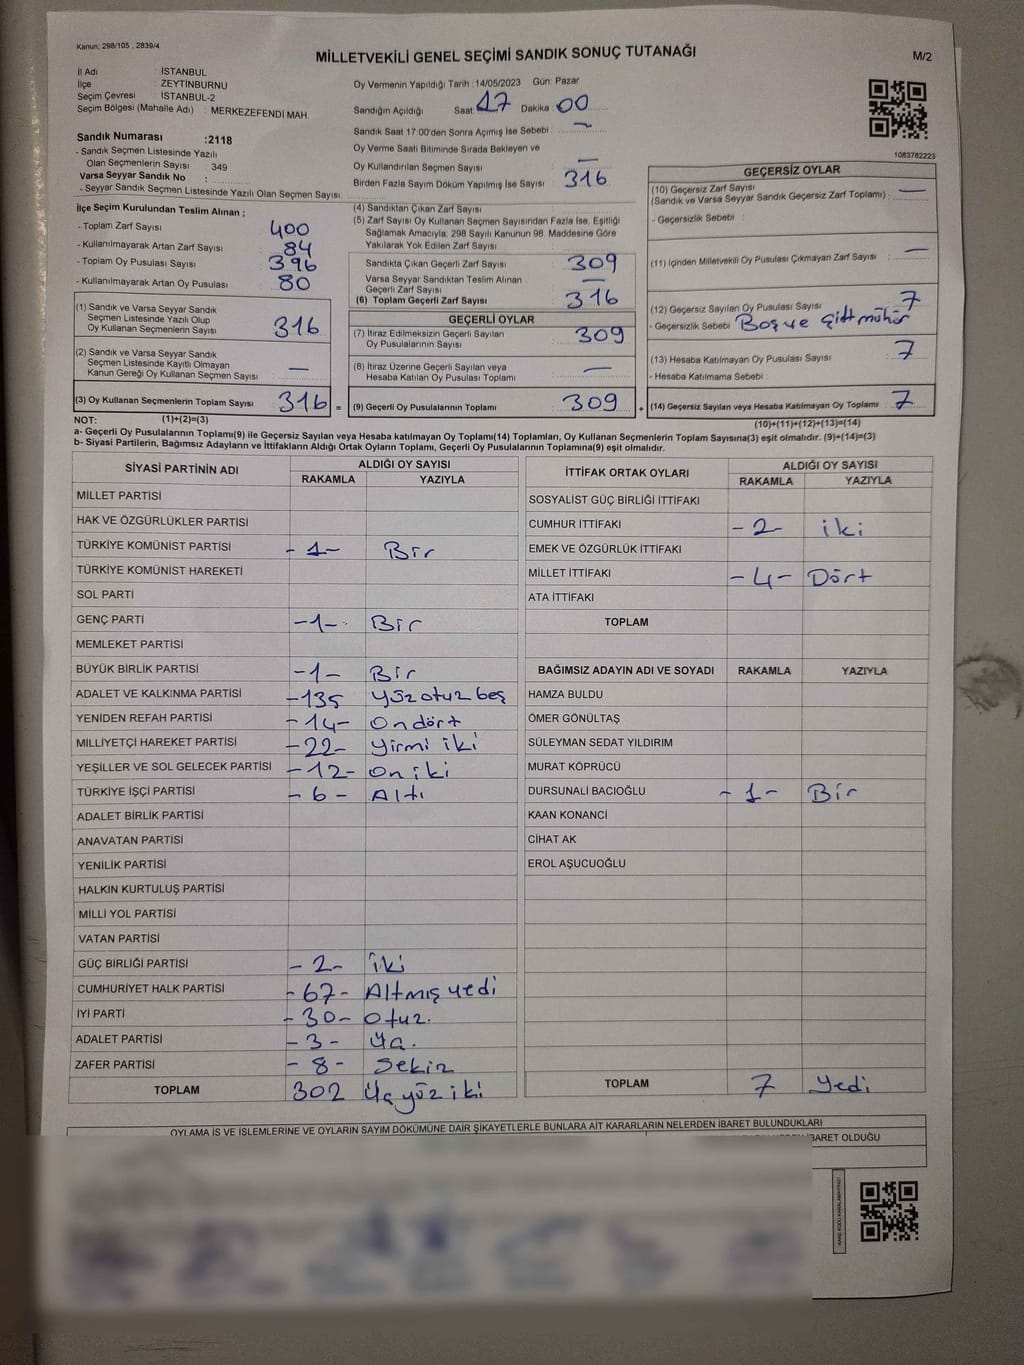 Kanun; 298/105 . 2839/4
MİLLETVEKİLİ GENEL SEÇİMİ SANDIK SONUÇ TUTANAĞI
M/2
İl Adı : İSTANBUL
İlçe : ZEYTİNBURNU
Seçim Çevresi : İSTANBUL-2
Seçim Bölgesi (Mahalle Adı) : MERKEZEFENDİ MAH.
Sandık Numarası :2118
- Sandık Seçmen Listesinde Yazılı
Olan Seçmenlerin Sayısı : 349
Varsa Seyyar Sandık No :
- Seyyar Sandık Seçmen Listesinde Yazılı Olan Seçmen Sayısı:
Oy Vermenin Yapıldığı Tarih : 14/05/2023 Gün: Pazar
Sandığın Açıldığı Saat 17 Dakika 00
Sandık Saat 17:00'den Sonra Açılmış İse Sebebi : —
Oy Verme Saati Bitiminde Sırada Bekleyen ve
Oy Kullandırılan Seçmen Sayısı —
Birden Fazla Sayım Döküm Yapılmış İse Sayısı : 316
1083782223
İlçe Seçim Kurulundan Teslim Alınan ;
- Toplam Zarf Sayısı : 400
- Kullanılmayarak Artan Zarf Sayısı : 84
- Toplam Oy Pusulası Sayısı : 396
- Kullanılmayarak Artan Oy Pusulası : 80
(1) Sandık ve Varsa Seyyar Sandık
Seçmen Listesinde Yazılı Olup
Oy Kullanan Seçmenlerin Sayısı : 316
(2) Sandık ve Varsa Seyyar Sandık
Seçmen Listesinde Kayıtlı Olmayan
Kanun Gereği Oy Kullanan Seçmen Sayısı : —
(3) Oy Kullanan Seçmenlerin Toplam Sayısı : 316 =
(4) Sandıktan Çıkan Zarf Sayısı
(5) Zarf Sayısı Oy Kullanan Seçmen Sayısından Fazla İse, Eşitliği
Sağlamak Amacıyla; 298 Sayılı Kanunun 98. Maddesine Göre
Yakılarak Yok Edilen Zarf Sayısı :
Sandıkta Çıkan Geçerli Zarf Sayısı : 309
Varsa Seyyar Sandıktan Teslim Alınan
Geçerli Zarf Sayısı : —
(6) Toplam Geçerli Zarf Sayısı : 316
GEÇERLİ OYLAR
(7) İtiraz Edilmeksizin Geçerli Sayılan
Oy Pusulalarının Sayısı : 309
(8) İtiraz Üzerine Geçerli Sayılan veya
Hesaba Katılan Oy Pusulası Toplamı : —
(9) Geçerli Oy Pusulalarının Toplamı : 309 +
GEÇERSİZ OYLAR
(10) Geçersiz Zarf Sayısı
(Sandık ve Varsa Seyyar Sandık Geçersiz Zarf Toplamı) : —
- Geçersizlik Sebebi :
(11) İçinden Milletvekili Oy Pusulası Çıkmayan Zarf Sayısı : —
(12) Geçersiz Sayılan Oy Pusulası Sayısı : 7
- Geçersizlik Sebebi : Boş ve çift mühür
(13) Hesaba Katılmayan Oy Pusulası Sayısı : 7
- Hesaba Katılmama Sebebi :
(14) Geçersiz Sayılan veya Hesaba Katılmayan Oy Toplamı : 7
NOT: (1)+(2)=(3)
(10)+(11)+(12)+(13)=(14)
a- Geçerli Oy Pusulalarının Toplamı(9) ile Geçersiz Sayılan veya Hesaba katılmayan Oy Toplamı(14) Toplamları, Oy Kullanan Seçmenlerin Toplam Sayısına(3) eşit olmalıdır. (9)+(14)=(3)
b- Siyasi Partilerin, Bağımsız Adayların ve İttifakların Aldığı Ortak Oyların Toplamı, Geçerli Oy Pusulalarının Toplamına(9) eşit olmalıdır.
SİYASİ PARTİNİN ADI ALDIĞI OY SAYISI
RAKAMLA YAZIYLA
MİLLET PARTİSİ
HAK VE ÖZGÜRLÜKLER PARTİSİ
TÜRKİYE KOMÜNİST PARTİSİ -1- Bir
TÜRKİYE KOMÜNİST HAREKETİ
SOL PARTİ
GENÇ PARTİ -1- Bir
MEMLEKET PARTİSİ
BÜYÜK BİRLİK PARTİSİ -1- Bir
ADALET VE KALKINMA PARTİSİ -135 Yüz otuz beş
YENİDEN REFAH PARTİSİ -14- On dört
MİLLİYETÇİ HAREKET PARTİSİ -22- Yirmi iki
YEŞİLLER VE SOL GELECEK PARTİSİ -12- On iki
TÜRKİYE İŞÇİ PARTİSİ -6- Altı
ADALET BİRLİK PARTİSİ
ANAVATAN PARTİSİ
YENİLİK PARTİSİ
HALKIN KURTULUŞ PARTİSİ
MİLLİ YOL PARTİSİ
VATAN PARTİSİ
GÜÇ BİRLİĞİ PARTİSİ -2- iki
CUMHURİYET HALK PARTİSİ -67- Altmış yedi
İYİ PARTİ -30- Otuz.
ADALET PARTİSİ -3- Üç.
ZAFER PARTİSİ -8- Sekiz
TOPLAM 302 Üç yüz iki
İTTİFAK ORTAK OYLARI ALDIĞI OY SAYISI
RAKAMLA YAZIYLA
SOSYALİST GÜÇ BİRLİĞİ İTTİFAKI
CUMHUR İTTİFAKI -2- iki
EMEK VE ÖZGÜRLÜK İTTİFAKI
MİLLET İTTİFAKI -4- Dört
ATA İTTİFAKI
TOPLAM
BAĞIMSIZ ADAYIN ADI VE SOYADI RAKAMLA YAZIYLA
HAMZA BULDU
ÖMER GÖNÜLTAŞ
SÜLEYMAN SEDAT YILDIRIM
MURAT KÖPRÜCÜ
DURSUNALİ BACIOĞLU -1- Bir
KAAN KONANCİ
CİHAT AK
EROL AŞUCUOĞLU
TOPLAM 7 Yedi
OYLAMA İŞ VE İŞLEMLERİNE VE OYLARIN SAYIM DÖKÜMÜNE DAİR ŞİKAYETLERLE BUNLARA AİT KARARLARIN NELERDEN İBARET BULUNDUKLARI
İBARET OLDUĞU